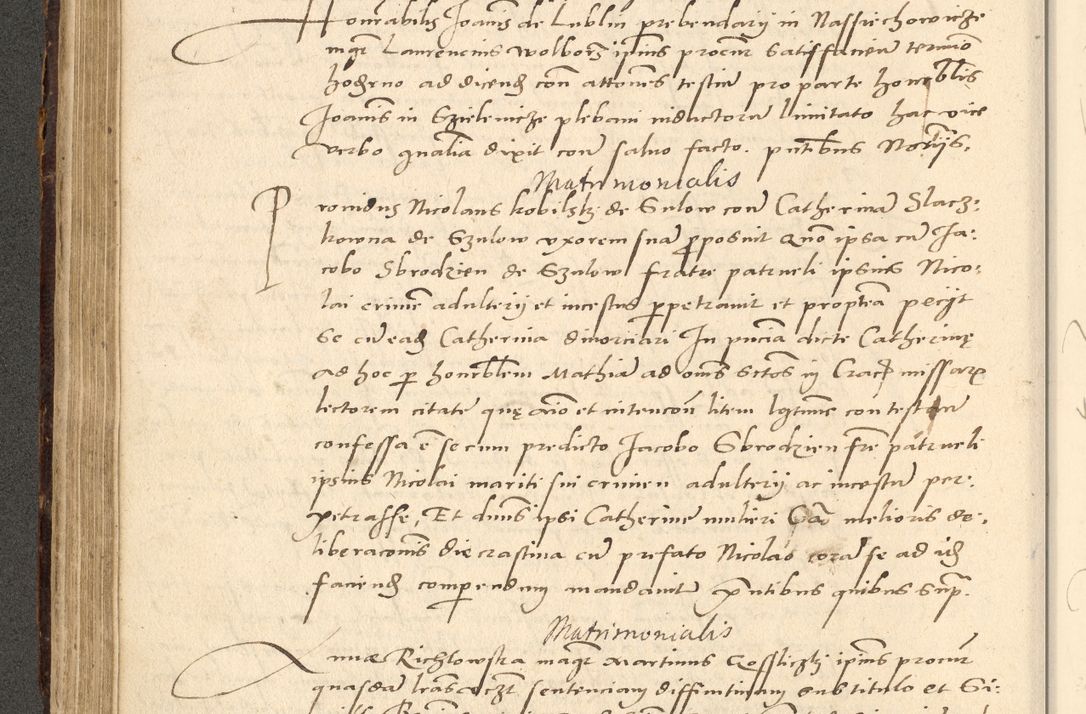 Honorabilis Joannis de Lublin prebendarij in Nassiechowicze
mgr Laurencius Wolborz ipsius procur satisfaciens termino
hodierno ad dicend con attones testiu pro parte honorabilis
Joannis in Szielenicze plebani inductoru limitato hac vice
verbo gnalia dixit cone saluo facto. pntibus Notarijs.
Matrimonialis
Prouidus Nicolaus kobilski de Sulow con Catherinam Slacz-
kowna de Szulow vxorem suam proposuit Quo ipsa cu Ja-
cobo Sbrodzien de Szulow fratre patrueli ipsius Nico-
lai crimen adulterij et incestus perpetrauit et propterea petijt
Se cu eade Catherina diuorciari In pncia dicte Catherine
ad hoc per honorabilem Mathiam ad omes Sctos in Crac missarum
lectorem citate que aio et intencone litem legitime contestan
confessa e se cum predicto Jacobo Sbrodzien fre patrueli
ipsius Nicolai mariti sui crimen adulterij ac incestu per-
petrasse, Et dnus ipsi Catherine mulieri Ca melioris de-
liberaconis die crastina cu prefato Nicolao cora se ad id
faciend comperendum mandauit pntibus quibus supra
Matrimonialis
Annae Richlowska magr Martinus Gosslicki ipsius procur
quasdam lras sentenciam diffinitiuam sub titulo et Si-